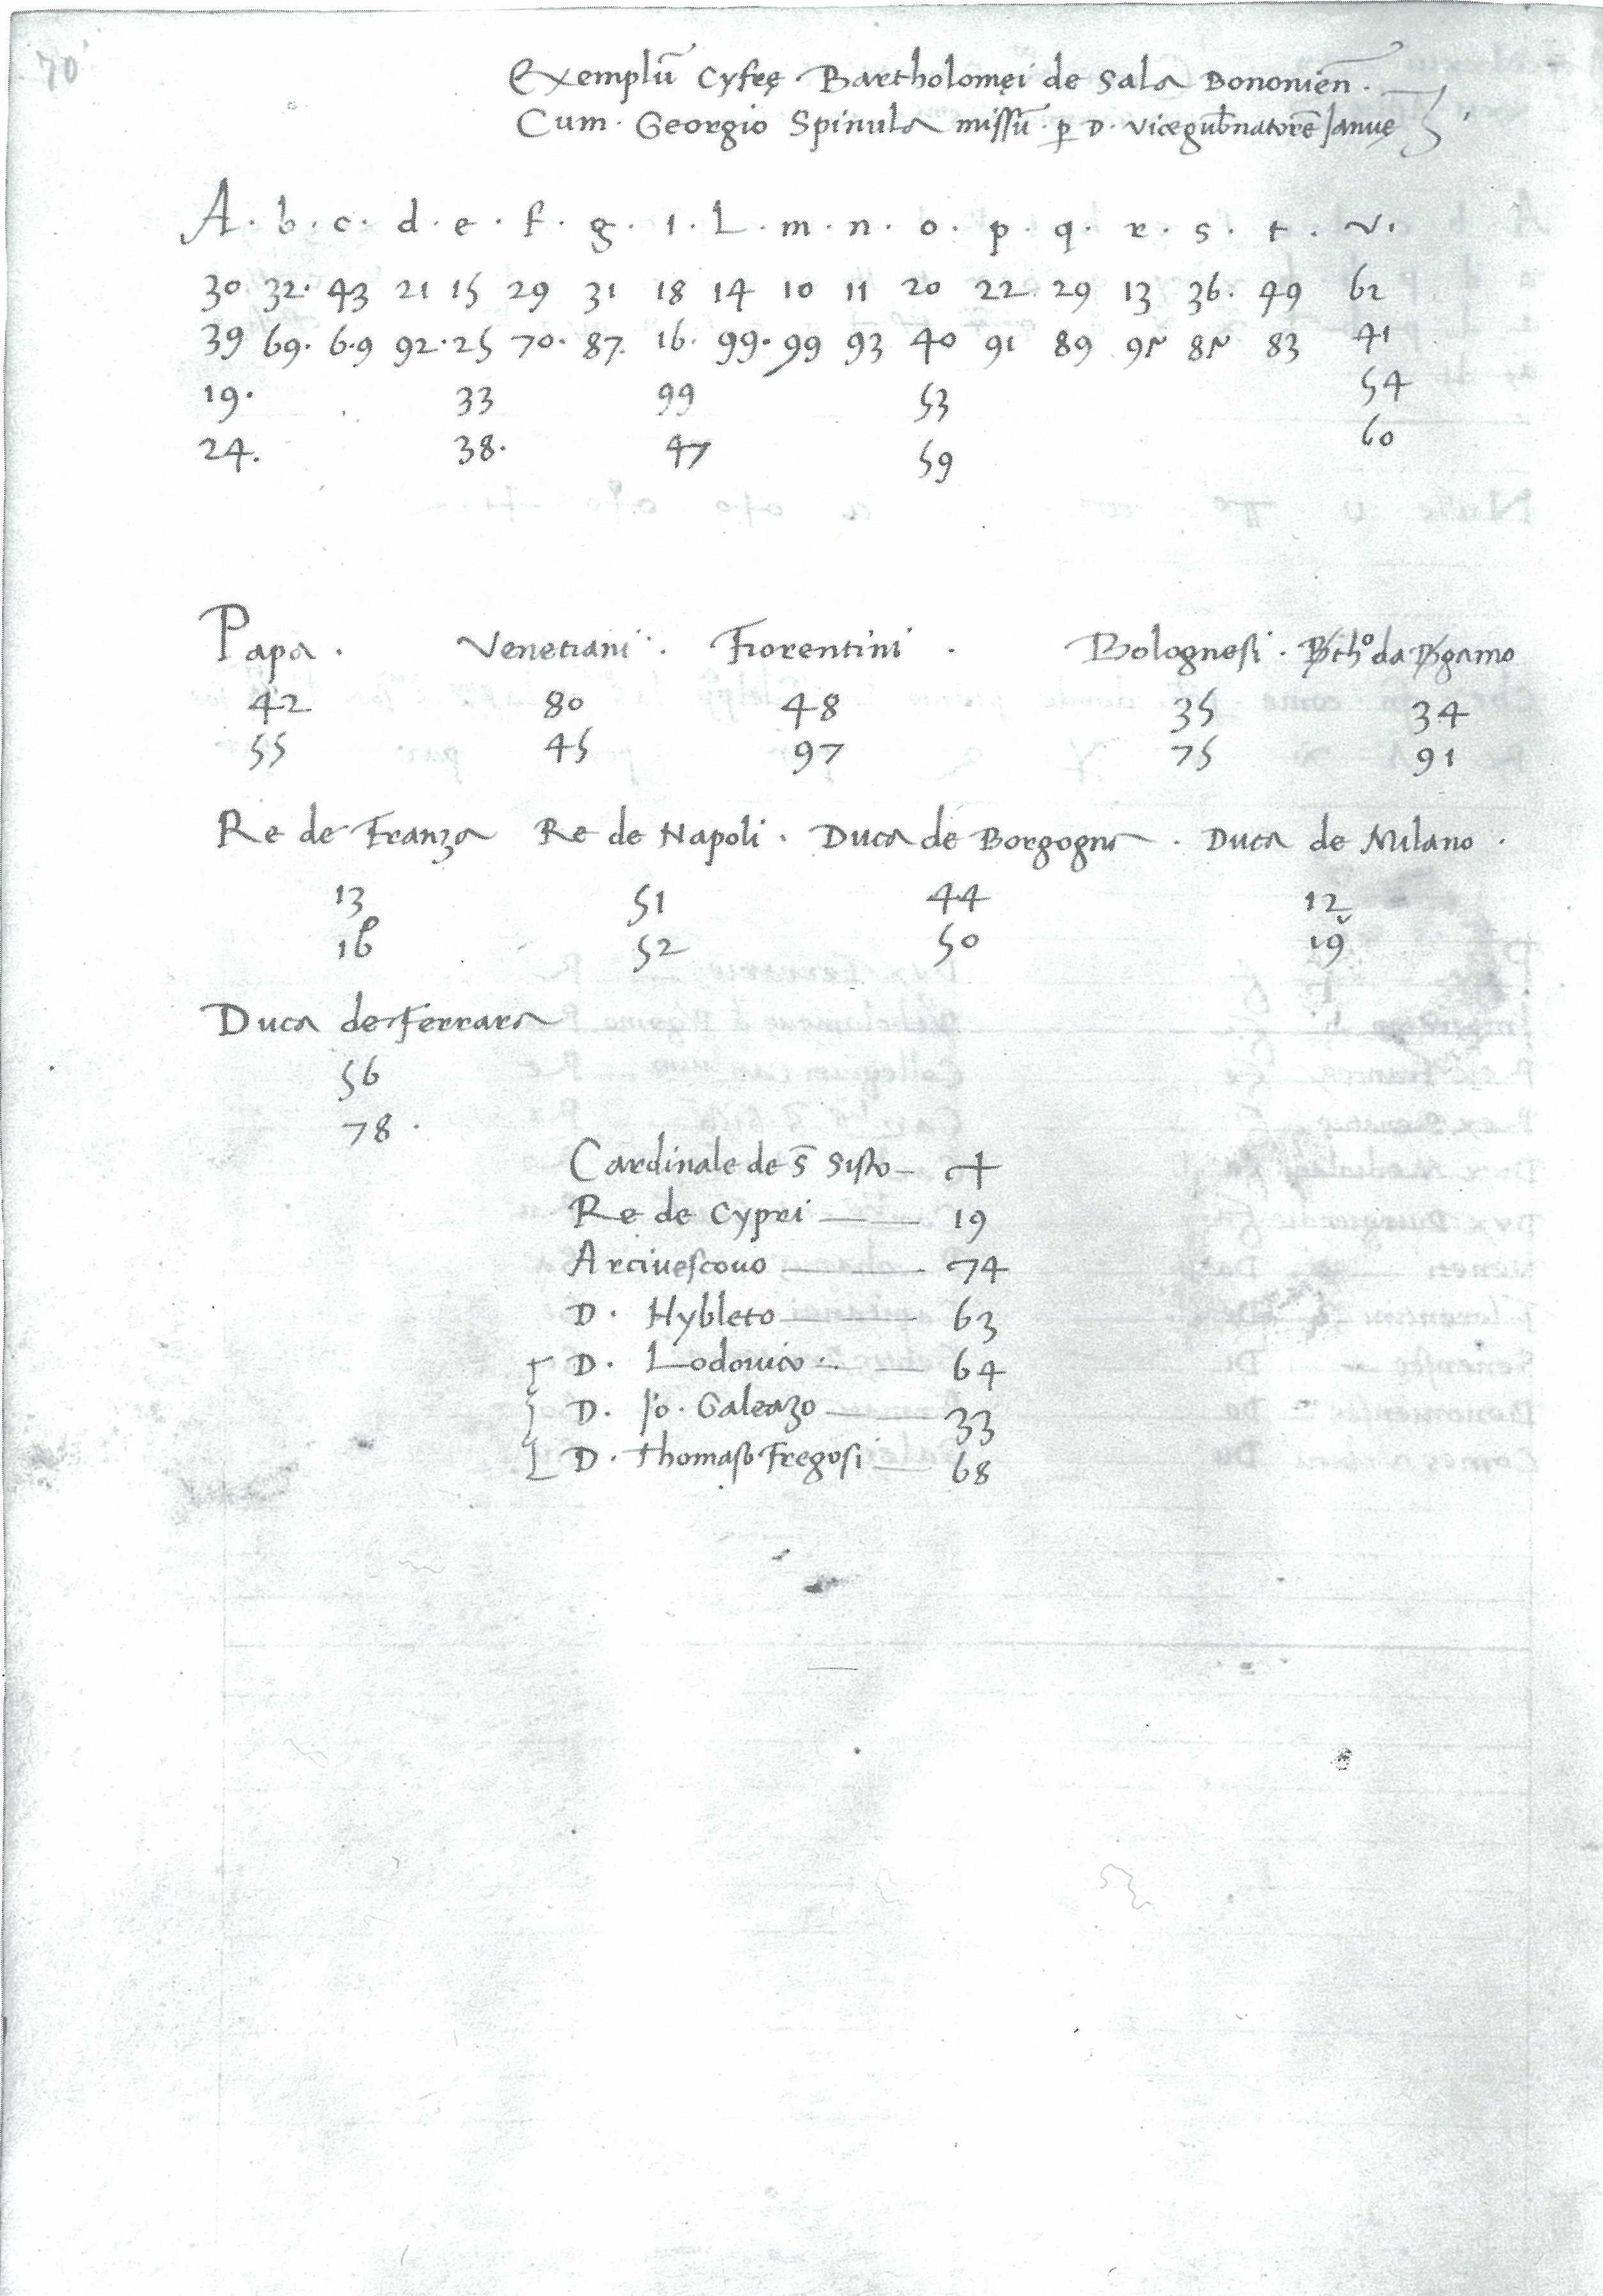 70
Exemplū Cyfrę · Bartholomęi de Sala Bononieñ ·
Cum · Georgio Spinula missū · ꝑ D · vicegub̄natorē Ianuę
A · b · c · d · e · f · g · i · L · m · n · o · p · q · r · s · t · v ·
30 32 · 43 21 15 29 31 18 14 10 11 20 22 29 13 36 · 49 62
39 69 · 6·9 92 · 25 70 · 87 · 16 · 99 · 99 93 40 91 89 95 85 83 41
19 · 33 99 53 54
24 · 38 · 47 59 60
Papa · Venetiani · Fiorentini · Bolognesi · Bthº da Bgamo
42 80 48 35 34
55 45 97 75 91
Re de Franza Re de Napoli · Duca de Borgogna · Duca de Milano ·
13 51 44 12
16 52 50 19
Duca de Ferrara
56
78 ·
Cardinale de S̄ Sisto – +
Re de Cypri — 19
Arcivescovo — 74
D · Hybleto — 63
D · Lodovico — 64
D · Jo · Galeazo — 33
D · Thomaso Fregosi — 68